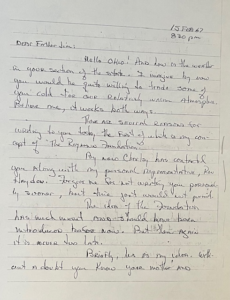 15 Feb 87
8:30 pm
Dear Father Jim,
Hello Ohio! And how is the weather
in your section of the state. I imagine by now
you would be quite willing to trade some of
your cold for our relatively warm atmosphere.
one, it works both ways.
There are several reasons for
writing to you today, the first of which is my con-
cept of "The Foundation."
My has contacted
you along with my personal representative,
Forgive me for not writing you personally
sooner, but I knew you would
The idea of the Foundation
has much merit and should have been
introduced before now. But then again
it is never too late.
Briefly, here is my idea. With-
out a doubt you know your mother and